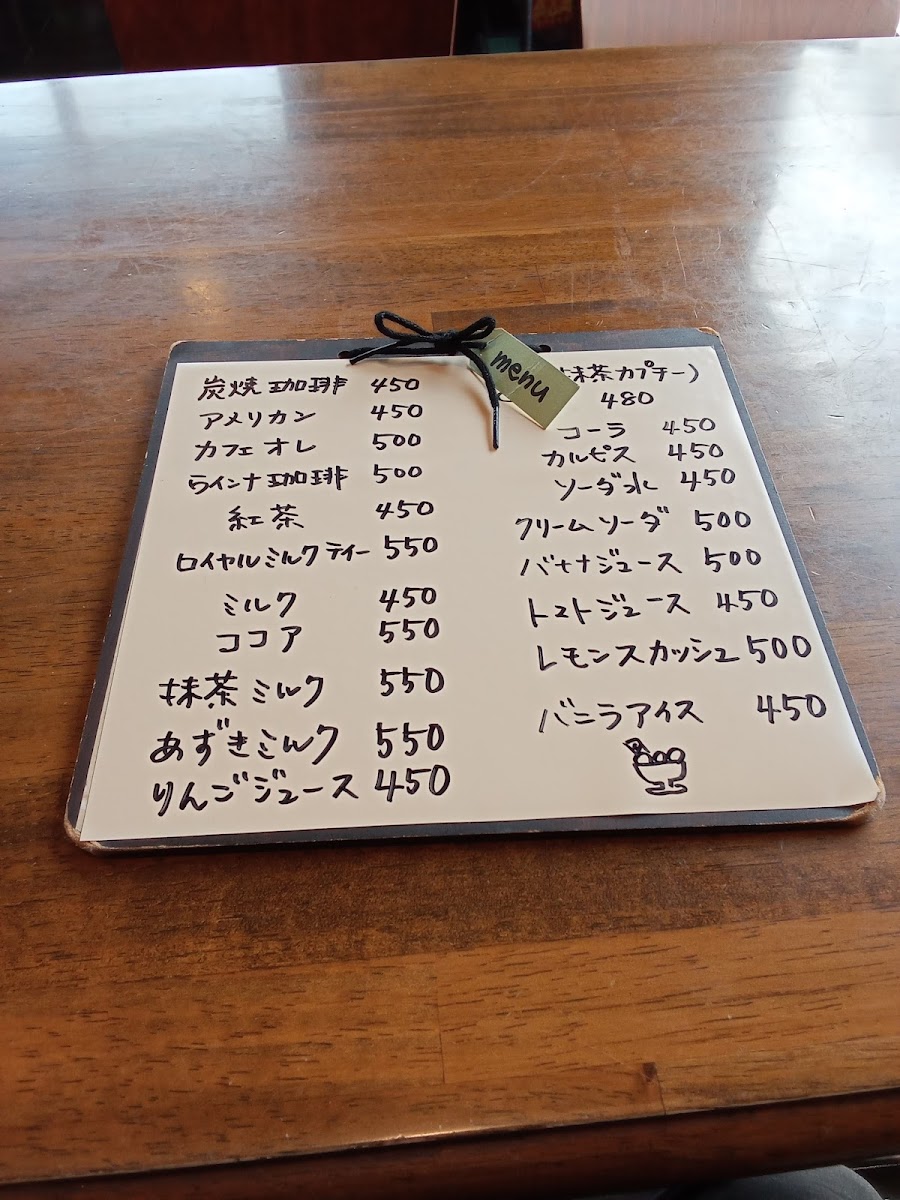 menu
炭焼珈琲 450
アメリカン 450
カフェオレ 500
らインナ珈琲 500
紅茶 450
ロイヤルミルクティー 550
ミルク 450
ココア 550
抹茶ミルク 550
あずきミルク 550
りんごジュース 450
抹茶カプチー)
480
コーラ 450
カルピス 450
ソーダ水 450
クリームソーダ 500
バナナジュース 500
トマトジュース 450
レモンスカッシュ 500
バニラアイス 450